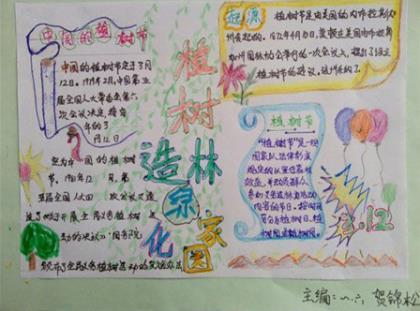 中国的植树节
中国的植树节定于3月
12日。1979年2月,中国第五
届全国人大常委会第六
次会议决定,将每
年的3
月12日
定为全国的植树节
1981年12月,第
五届全国人大四次会议又通
过了《关于开展全民义务植树
运动的决议》。国务院
颁布了全民义务植树运动的实施办法
起源
植树节是由美国的内布拉斯加
州发起的。1872年4月10日,莫顿在美国内布拉斯
加州园林协会举行的一次会议上,提出了设立
植树节的建议。
植树造林
绿化家园
植树节
"植树节"是一些
国家以法律形式
规定的以宣传森林
效益,并动员群众
参加造林为活动
内容的节日。按时间
长短可分为植树日、植
树周或植树月。
3.12
主编:八.六 贺锦松